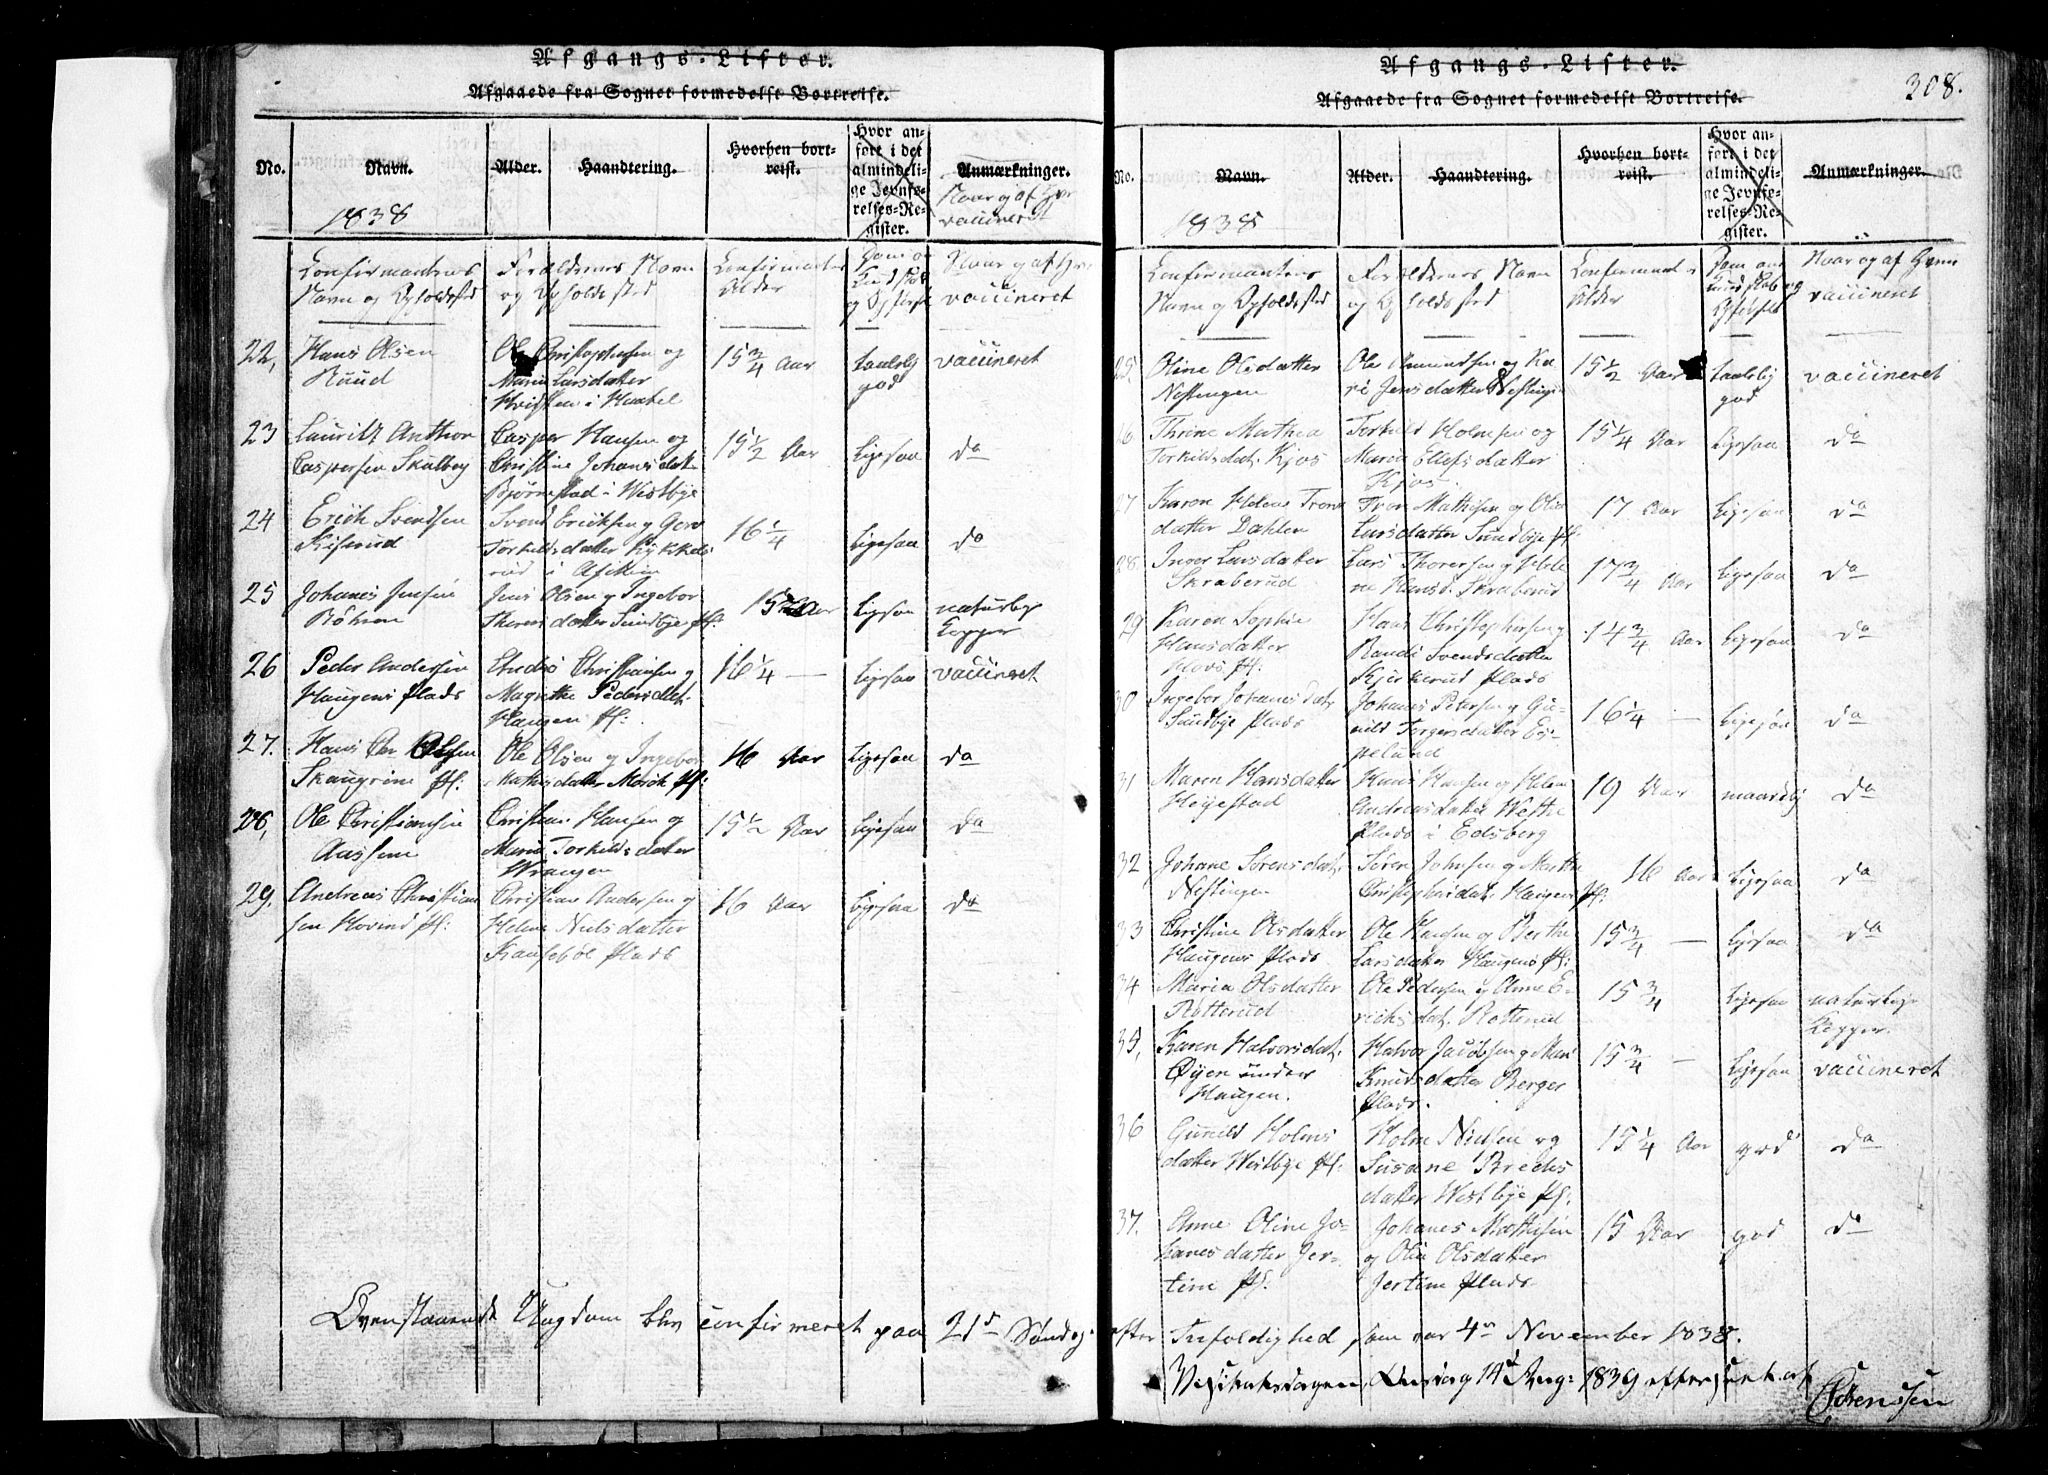 Afgangs-Lister.
Afgaaede fra Sognet formedelst Bortreise.
No.
Navn.
Alder.
Haandtering.
Hvorhen bort-
reist.
Hvor an-
ført i det
almindeli-
ge Jevnfø-
relses-Re-
gister.
Anmærkninger.
1838
Naar og af Hvem
vaccineret
Confirmantens
Navn og Opholdssted
Forældrenes Navn
og Opholdssted
Confirmantens
Alder
Dom om
Kundskab
og Opførsel
Naar og af Hvem
vaccineret
22,
Hans Olsen
Ruud
Ole Christophersen og
Maria Larsdatter
15 3/4 Aar
taalelig
god
vaccineret
23
Lauritz Anthon
Caspersen Skulberg
Casper Hansen og
Christine Johansdat.
Bjørnestad i Westbye
15 1/2 Aar
ligesaa
do
24
Erich Svendsen
Svend Erichsen og
Torkildsdatter
16 1/4
ligesaa
do
25
Johanes Jensen
Jens Olsen og Ingebor
Thoresdatter Sundbye Pl:
15 Aar
ligesaa
naturlige
Kopper
26
Peder Andersen
Haugens Plads
Andres Christiansen og
Magrethe Pedersdat.
Haugen Pl:
16 1/4 —
ligesaa
vaccineret
27.
Hans Olsen
Ole Olsen og Ingebor
Mathisdatter
16 Aar
ligesaa
do
28,
Ole Christiansen
Christian Hansen og
Maria Torkildsdatter
Wrangen
15 1/2 Aar
ligesaa
do
29.
Andreas Christian
sen Hovind Pl:
Christian Andersen og
Helene Nielsdatter
Plads
16 Aar
ligesaa
do
Ovenstaaende Ungdom blev confirmeret paa 21de Søndag
Afgangs-Lister.
Afgaaede fra Sognet formedelst Bortreise.
308.
No.
Navn.
Alder.
Haandtering.
Hvorhen bort-
reist.
Hvor an-
ført i det
almindeli-
ge Jevnfø-
relses-Re-
gister.
Anmærkninger.
1838
Confirmantens
Navn og Opholdssted
Forældrenes Navn
og Opholdssted
Confirmantens
Alder
Dom om
Kundskab og
Opførsel
Naar og af Hvem
vaccineret
25.
Oline Olsdatter
Nestingen
Ole Amundsen og Ka-
ri Jensdatter Nestingen
15 1/2 Aar
taalelig
god
vaccineret
26
Thrine Mathea
Torkildsdat. Kjos
Torkild Holmsen og
Maren Ellefsdatter
Kjos
15 1/4 Aar
ligesaa
do
27
Karen Helene Trons
datter Dahlen
Tron Mathisen og
Larsdatter Sundbye Pl:
17 Aar
ligesaa
do
28
Inger Larsdatter
Skraberud
Lars Thoresen og Hele-
ne Hansd. Skraberud
17 3/4 Aar
ligesaa
do
29
Karen Sophie
Hansdatter
Hans Christophersen og
Randi Svendsdatter
Kjerkerud Plads
14 3/4 Aar
ligesaa
do
30
Ingebor Johanesdat.
Sundbye Plads
Johanes Petersen og Gu-
nild Torgersdatter Es-
pelund
16 1/4 —
ligesaa
do
31
Maren Hansdatter
Høyestad
Hans Hansen og Helene
Andreasdatter
Plads i Edsberg
19 Aar
maadelig
do
32
Johane Sørensdat.
Nestingen
Søren Johnsen og Marthe
Christophersdat. Haugens Pl:
16 Aar
ligesaa
do
33
Christine Olsdatter
Haugens Plads
Ole Hansen og Berthe
Larsdatter Haugens Pl:
15 3/4 —
ligesaa
do
34
Maria Olsdatter
Rotterud
Ole Pedersen og Anne E-
richsdat. Rotterud
15 3/4
ligesaa
naturlige
Kopper
35,
Karen Halvorsdat.
Øyen under
Haugen.
Halvor Jacobsen og Mari
Knudsdatter Berger
Plads.
15 3/4 —
ligesaa
vaccineret
36
Gunild Holms
datter Westbye Pl:
Holm Nielsen og
Susane Bredes
datter Westbye Pl:
15 1/4 Aar
god
do
37.
Anne Oline Jo-
hanesdatter Jer-
tine Pl:
Johanes Mathisen
og Olia Olsdatter
Jertine Plads
15 Aar
god
do
efter Trefoldighed som var 4de November 1838.
Visitatsdagen, Onsdag 14de Aug: 1839 efterseet af
Sørenssen